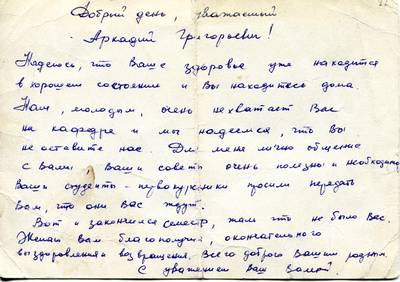 Добрий день, уважаемый
Аркадий Григорьевич!
Надеюсь, что Ваше здоровье уже находится
в хорошем состоянии и Вы находитесь дома.
Нам, молодым, очень не хватает Вас
на кафедре и мы надеемся, что Вы
не оставите нас. Для меня лично общение
с Вами, Ваши советы очень полезны и необходимы
Ваши студенты - первокурсники просили передать
Вам, что они Вас ждут.
Вот и закончился семестр, жаль что не было Вас.
Желаю Вам благополучия, окончательного
выздоровления и возвращения. Всего доброго Вашим родным.
С уважением Ваш